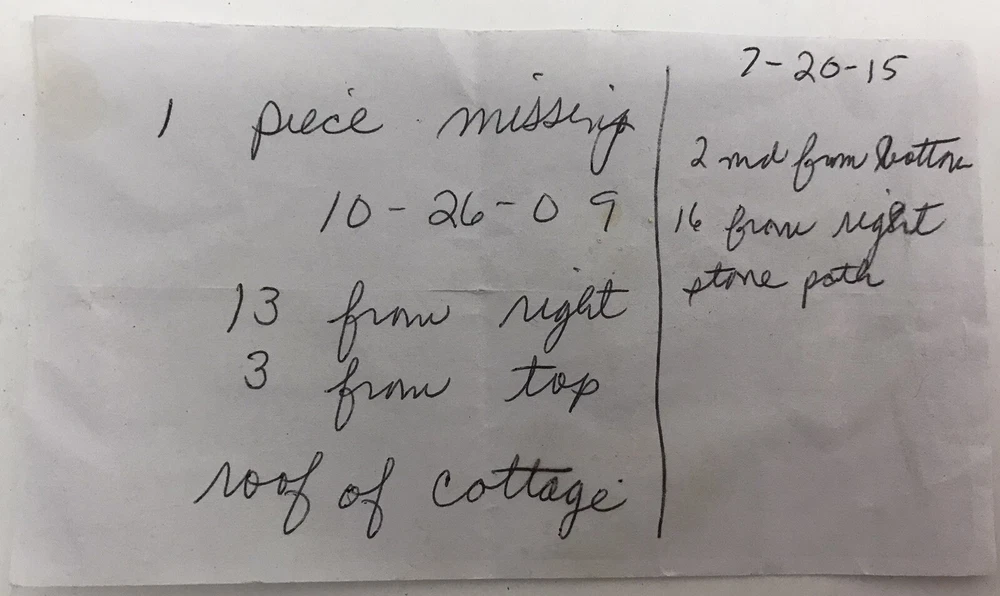 1 piece missing
10-26-09
13 from right
3 from top
roof of cottage
7-20-15
2nd from bottom
16 from right
stone path